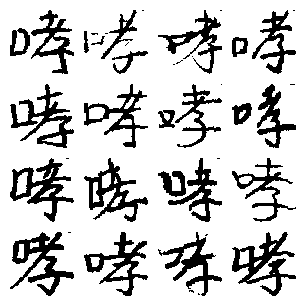 哮哮哮哮
哮哮哮哮
哮哮哮哮
哮哮哮哮